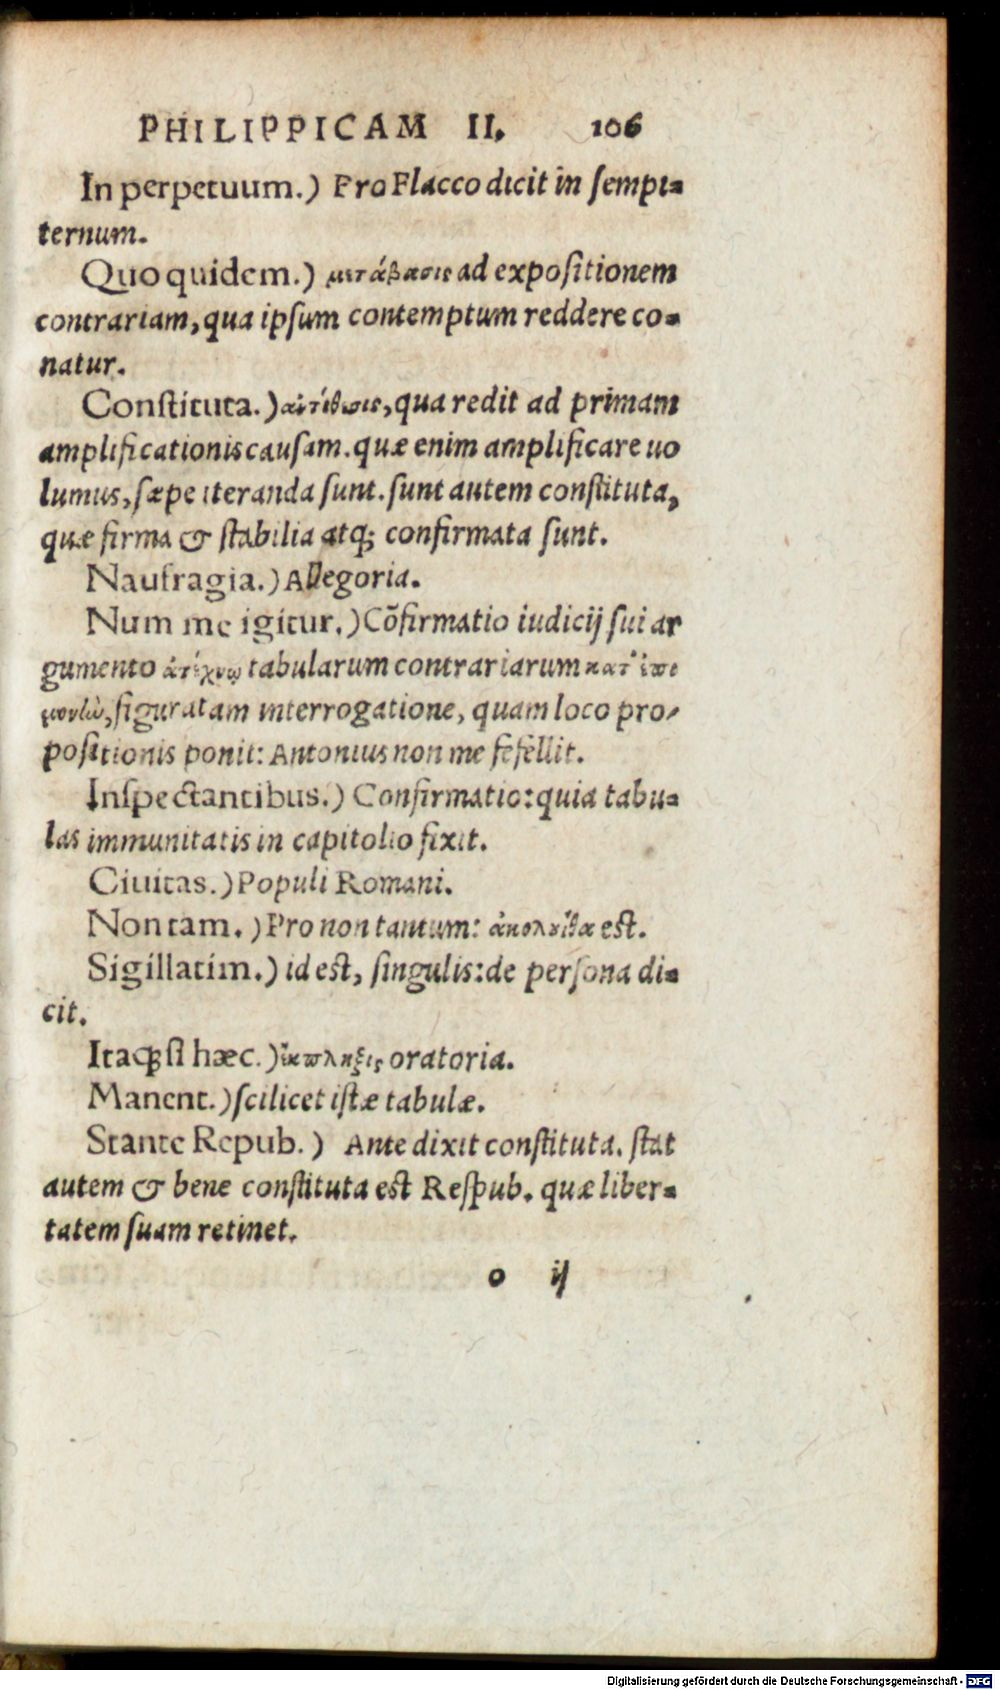 PHILIPPICAM II. 106
In perpetuum.) Pro Flacco dicit in sempi-
ternum.
Quo quidem.) μετάβασις ad expositionem
contrariam, qua ipsum contemptum reddere co-
natur.
Constituta.) ἀντίθεσις, qua redit ad primam
amplificationis causam. quæ enim amplificare uo
lumus, sæpe iteranda sunt. sunt autem constituta,
quæ firma & stabilia atq; confirmata sunt.
Naufragia.) Allegoria.
Num me igitur.) Cõfirmatio iudicij sui ar
gumento ἀτέχνῳ tabularum contrariarum κατ'
figuratam interrogatione, quam loco pro-
positionis ponit: Antonius non me fefellit.
Inspectantibus.) Confirmatio: quia tabu-
las immunitatis in capitolio fixit.
Ciuitas.) Populi Romani.
Non tam.) Pro non tantum: ἀκολουθία est.
Sigillatim.) id est, singulis: de persona di-
cit.
Itaq; si hæc.) ἔκπληξις oratoria.
Manent.) scilicet istæ tabulæ.
Stante Repub.) Ante dixit constituta. stat
autem & bene constituta est Respub. quæ liber-
tatem suam retinet.
o ij
Digitalisierung gefördert durch die Deutsche Forschungsgemeinschaft - DFG